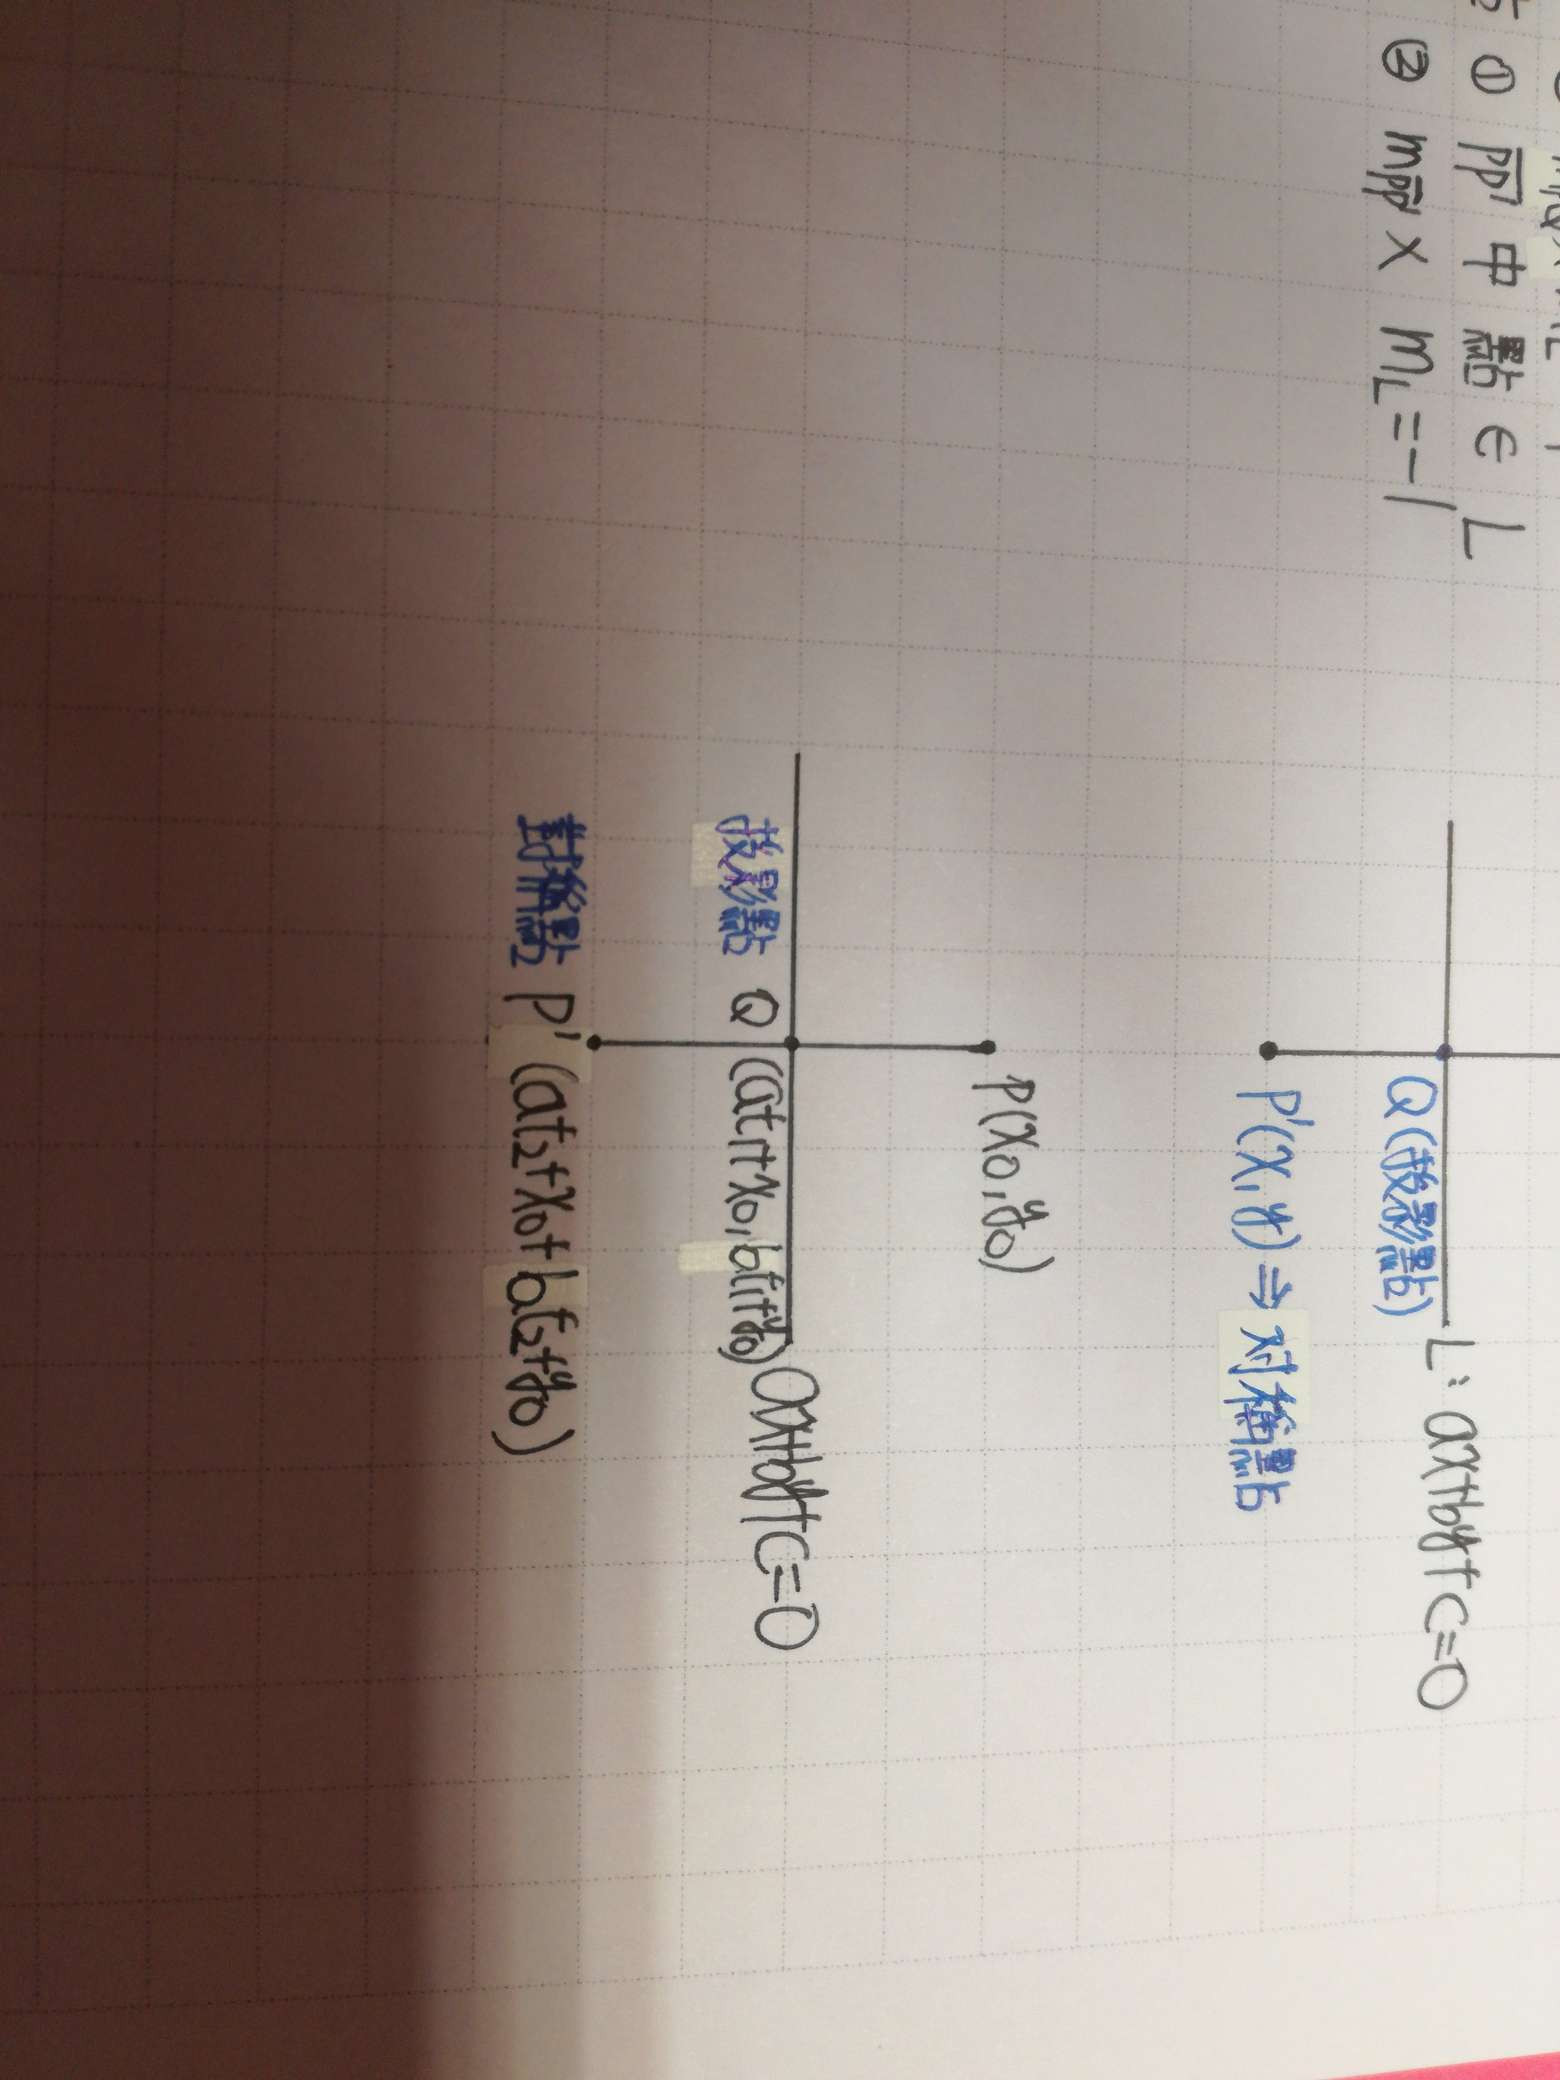 ① PP' 中點 ∈ L
② mPP' × mL = -1
L: ax+by+c=0
Q(投影點)
P'(x,y) ⇒ 对稱點
P(x0,y0)
ax+by+c=0
投影點 Q (at1+x0, bt1+y0)
對稱點 P' (at2+x0+bt2+y0)